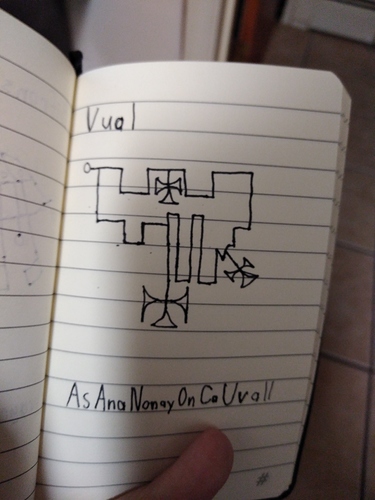 Vual
As Ana Nonay On Ca Uvall
#